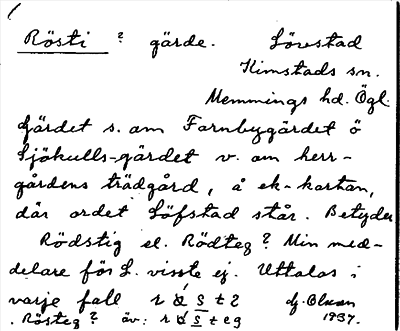 Rösti ? gärde. Lövstad
Kimstads sn.
Memmings hd. Ögl.
Gärdet s. om Farnbygärdet ö
Sjökulls-gärdet v. om herr-
gårdens trädgård, å ek-kartan,
där ordet Löfstad står. Betyder
Rödstig el. Rödteg? Min med-
delare för L. visste ej. Uttalas i
varje fall
Rösteg? äv: 1937.